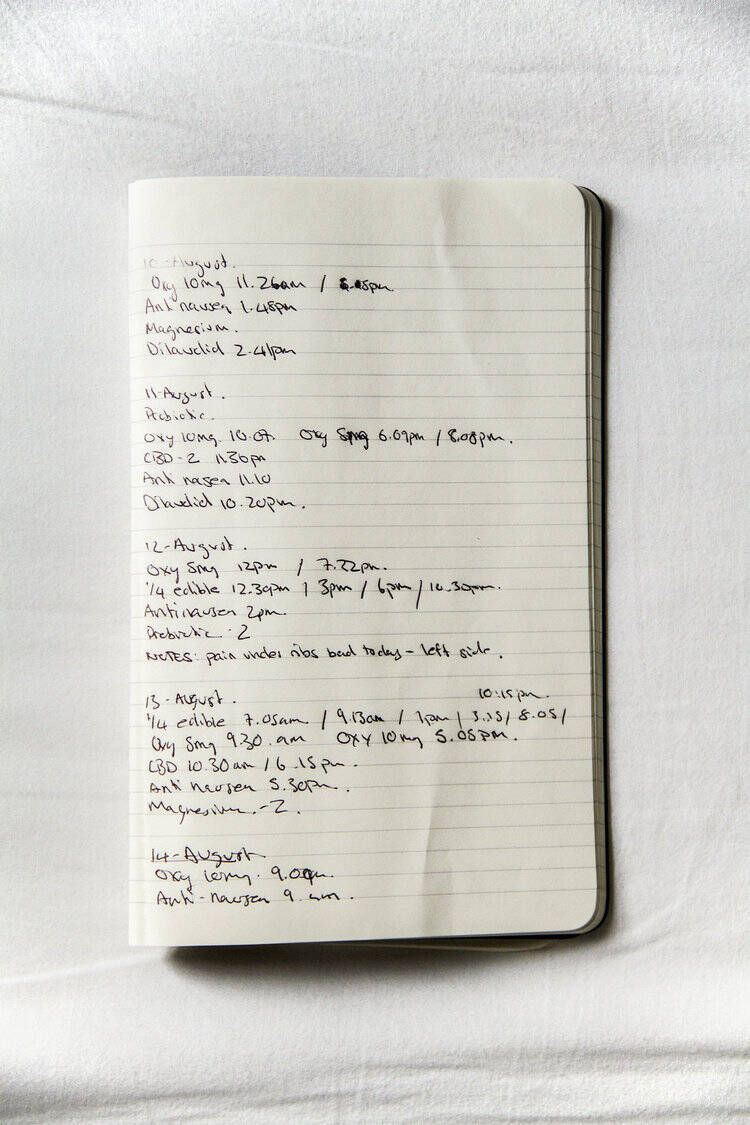 10-August.
Oxy 10mg 11.26am /
Anti nausea 1.48pm
Magnesium.
Dilaudid 2.41pm
11-August.
Probiotic.
Oxy 10mg. 10.07. Oxy 5mg 6.09pm / 8.08pm.
CBD-2 11.30pm
Anti nausea 11.10
Dilaudid 10.20pm.
12-August.
Oxy 5mg 12pm / 7.22pm.
1/4 edible 12.30pm / 3pm / 6pm / 10.30pm.
Antinausea 2pm.
Probiotic -2
NOTES: pain under ribs bad today - left side.
13-August. 10:15pm.
1/4 edible 7.05am / 9.13am / 1pm / 3.15 / 8.05 /
Oxy 5mg 9.30 am OXY 10mg 5.05PM.
CBD 10.30am / 6.15pm.
Anti nausea 5.30pm.
Magnesium -2.
14-August
Oxy 10mg.
Anti-nausea 9. am.